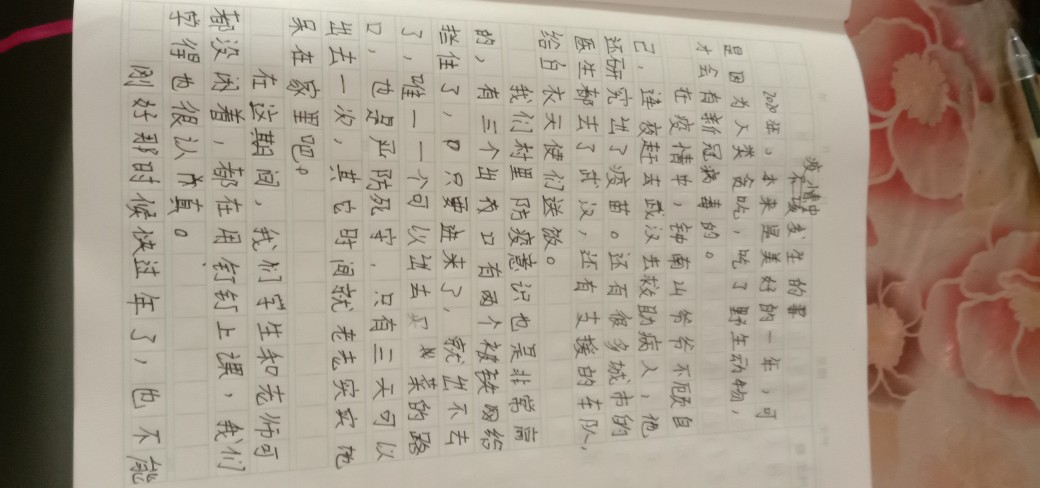 疫情中发生的事
2020年。本来是美好的一年，可
是因为人类贪吃，吃了野生动物，
才会有新冠病毒的。
在疫情中，钟南山爷爷不顾自
己，连夜赶去武汉去救助病人，他
还研究出了疫苗。还有很多城市的
医生都去了武汉，还有支援的车队，
给白衣天使们送饭。
我们村里防疫意识也是非常高
的，有三个出我口有两个被铁网给
拦住了，只要进来了，就出不去
了，唯一一个可以进去买菜的路
口，也是严防死守，只有三天可以
出去一次，其它时间就老老实实地
呆在家里吧。
在这期间，我们学生和老师可
都没闲着，都在用钉钉上课，我们
学得也很认真。
刚好那时候快过年了，也不能